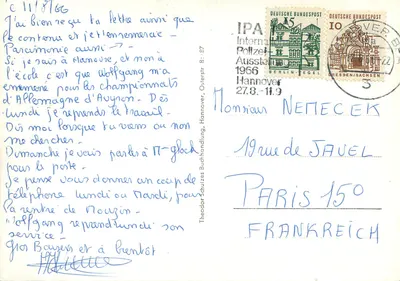 c 11/8/66
J'ai bien reçu ta lettre ainsi que
le contenu et je t'en remercie
Parcimonie aussi
Si je suis à Hanovre, et non à
l'école c'est que Wolfgang m'a
emmené pour les championnats
d'Allemagne d'Aviron. Dès
lundi je reprends le travail.
Dis moi lorsque tu viens ou non
me chercher.
Dimanche je vais parler à Mr Glock
pour le poste.
Je pense vous donner un coup de
téléphone lundi ou Mardi, pour
la rentrée de
Wolfgang reprend lundi son
service
Gros Baisers et à bientôt
Theodor Schulzes Buchhandlung, Hannover, Osterstr.
15
DEUTSCHE BUNDESPOST
10
DEUTSCHE BUNDESPOST
DRESDEN/SACHSEN
IPA
Internat
Polizei
Ausstell
1966
Hannover
27.8.-11.9
3
Monsieur NEMECEK
19 rue de JAVEL
PARIS 15°
FRANKREICH